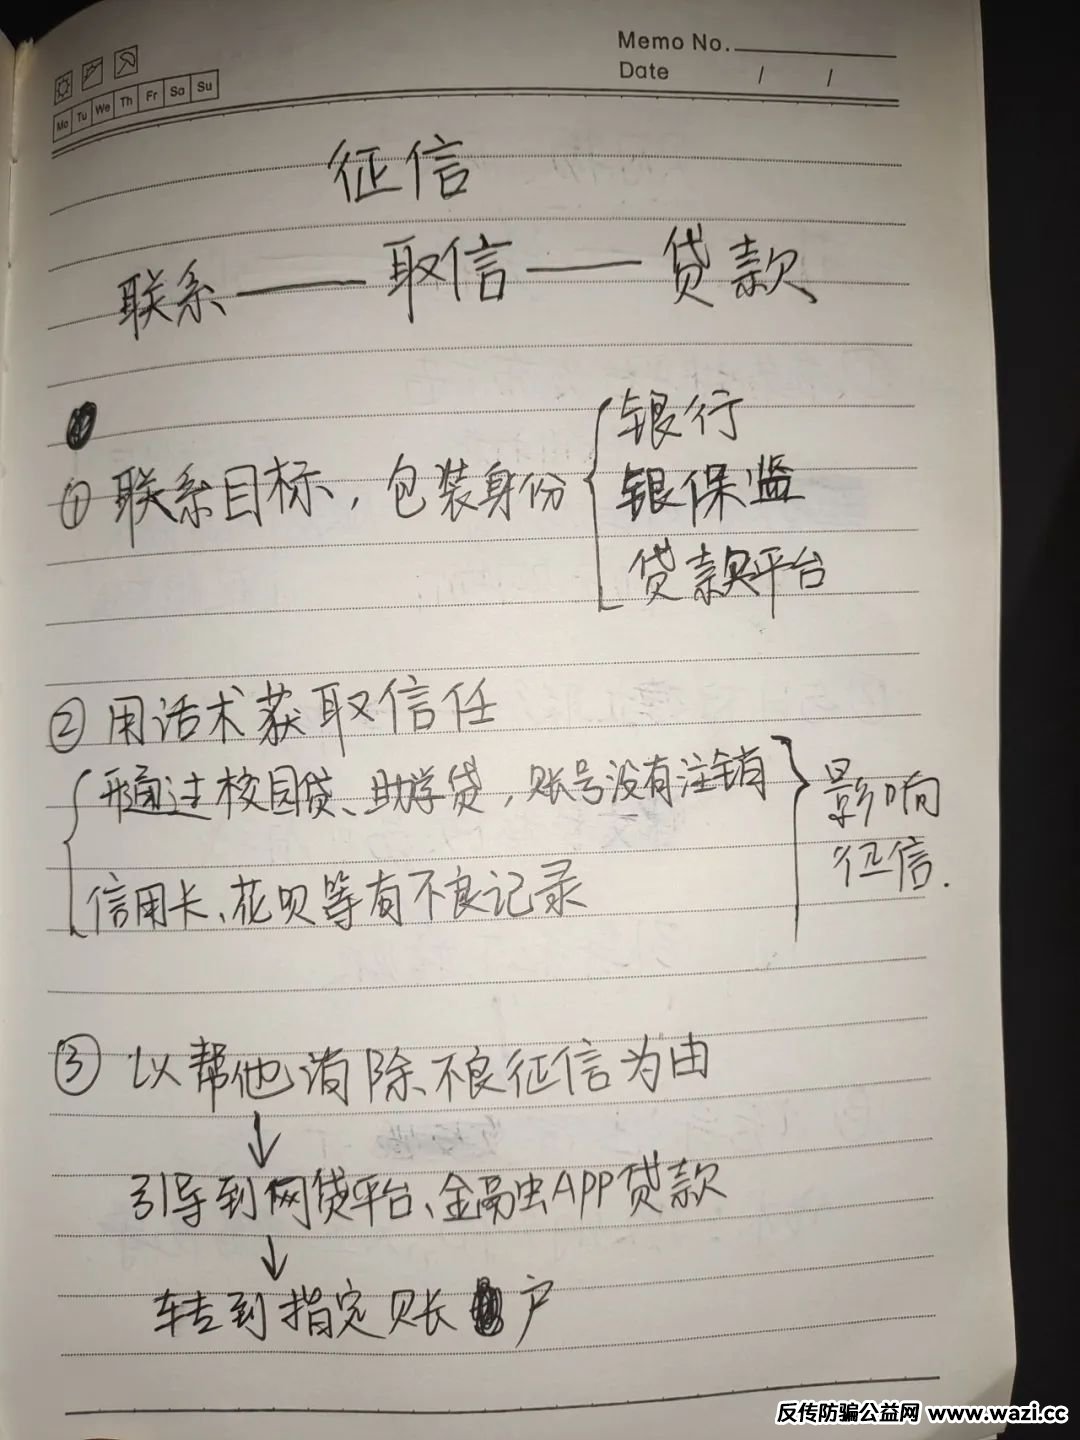 Memo No.
Date / /
Mo Tu We Th Fr Sa Su
征信
联系——取信——贷款
① 联系目标，包装身份
银行
银保监
贷款平台
② 用话术获取信任
通过校园贷、助学贷，账号没有注销
信用卡、花呗等有不良记录
影响
征信.
③ 以帮他消除不良征信为由
↓
引导到网贷平台、金融APP贷款
↓
转到指定账户
反传防骗公益网 www.wazi.cc